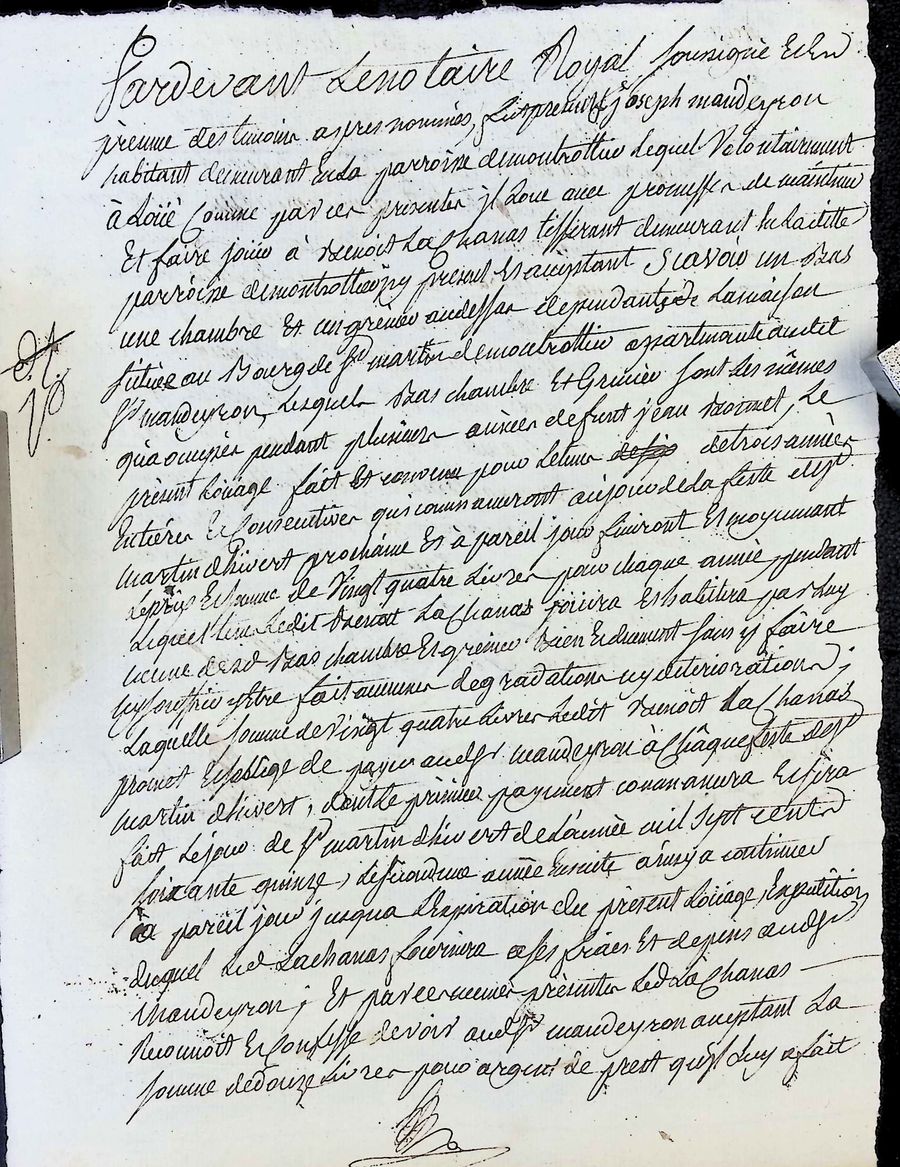 Pardevant Lenotaire Royal soussigné Et En
présence des temoins aspres nommés, fut present Sr joseph maudeyron
habitant demeurant En La parroisse demontrottier Lequel Volontairement
à Loüé Comme par ces presentes jl Loue avec promesses de maintenir
Et faire jouir à Benoit La Chanas tisserant demeurant En Laditte
parroisse demontrottier jcy present Et acceptant Scavoir un Bas
une chambre Et un grenier audessus dependants de Lamaison
située au Bourg de St martin demontrottier appartenante audit
Sr maudeyron, Lesquels Bas chambre Et Grenier sont Les mêmes
qu'a occupés pendant plusieurs années defunt jean Bonnet, Le
présent Loüage fait Et convenu pour Letems detrois années
Entiéres Et Consecutives qui commanceront aujour de La feste de St
martin d'hivert prochaine Et à pareil jour finiront Et moyennant
Leprix Et somme de Vingt quatre Livres pour chaque année pendant
Lequel tems Ledit Benoit La Chanas jouira Et habitera par Luy
même desd Bas chambre Et grenier Bien Et düement sans y faire
ny souffrir Estre fait aucunes degradations ny deteriorations;
Laquelle somme de Vingt quatre Livres Ledit Benoît La Chanas
promet Et s'oblige de payer audSr maudeyron à Châque feste de St
martin d'hivert, dont Le premier payement commancera Et sera
fait Lejour de St martin d'hivert de L'année mil sept cents
soixante quinze, Lesecond une année Ensuite ainsy a continuer
à pareil jour jusqua L'expiration du présent Loüage, Expedition
duquel Led Lachanas fournira a ses fraies Et depens audSr
Maudeyron; Et par ces mêmes présentes Led La Chanas
Reconnoit Et Confesse devoir audSr maudeyron acceptant La
somme dedouze Livres pour argent de prest qu'il Luy a fait